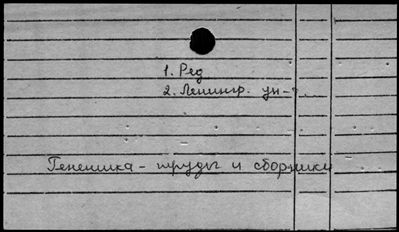 1. Ред
2. Ленингр. ун-т.
Генетика - труды и сборники